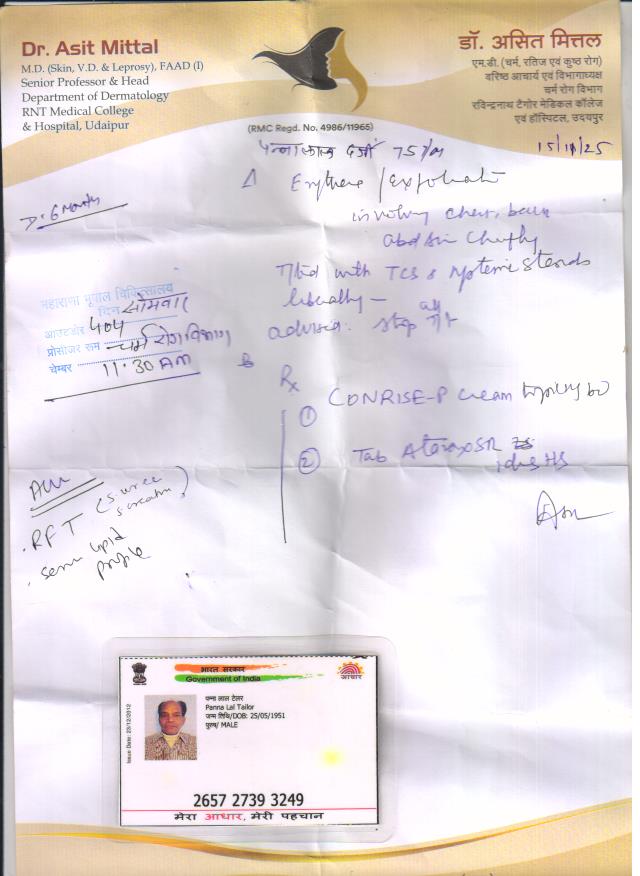 Dr. Asit Mittal
M.D. (Skin, V.D. & Leprosy), FAAD (I)
Senior Professor & Head
Department of Dermatology
RNT Medical College
& Hospital, Udaipur
डॉ. असित मित्तल
एम.डी. (चर्म, रतिज एवं कुष्ठ रोग)
वरिष्ठ आचार्य एवं विभागाध्यक्ष
चर्म रोग विभाग
रविन्द्रनाथ टैगोर मेडिकल कॉलेज
एवं हॉस्पिटल, उदयपुर
(RMC Regd. No. 4986/11965)
पन्नालाल दर्जी 75
D: 6 Months
involving chest, back
chiefly
with TCS & systemic steroids
liberally –
advised: stop all
महाराणा भूपाल चिकित्सालय
दिन सोमवार
आउटडोर 404
प्रोसीजर रूम चर्म रोग विभाग
चेम्बर 11.30 AM
Rx
① CONRISE-P cream
② Tab Atarax SR
HS
RFT
serum lipid
profile
भारत सरकार
Government of India
आधार
Issue Date: 23/12/2012
पन्ना लाल टेलर
Panna Lal Tailor
जन्म तिथि/DOB: 25/05/1951
पुरुष/ MALE
2657 2739 3249
मेरा आधार, मेरी पहचान